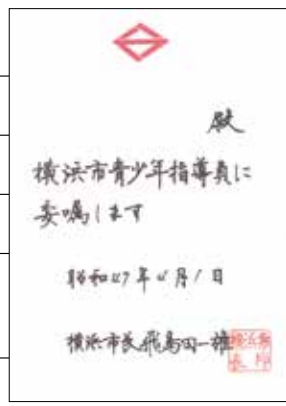 殿
横浜市青少年指導員に
委嘱します
昭和47年4月1日
横浜市長 飛鳥田一雄